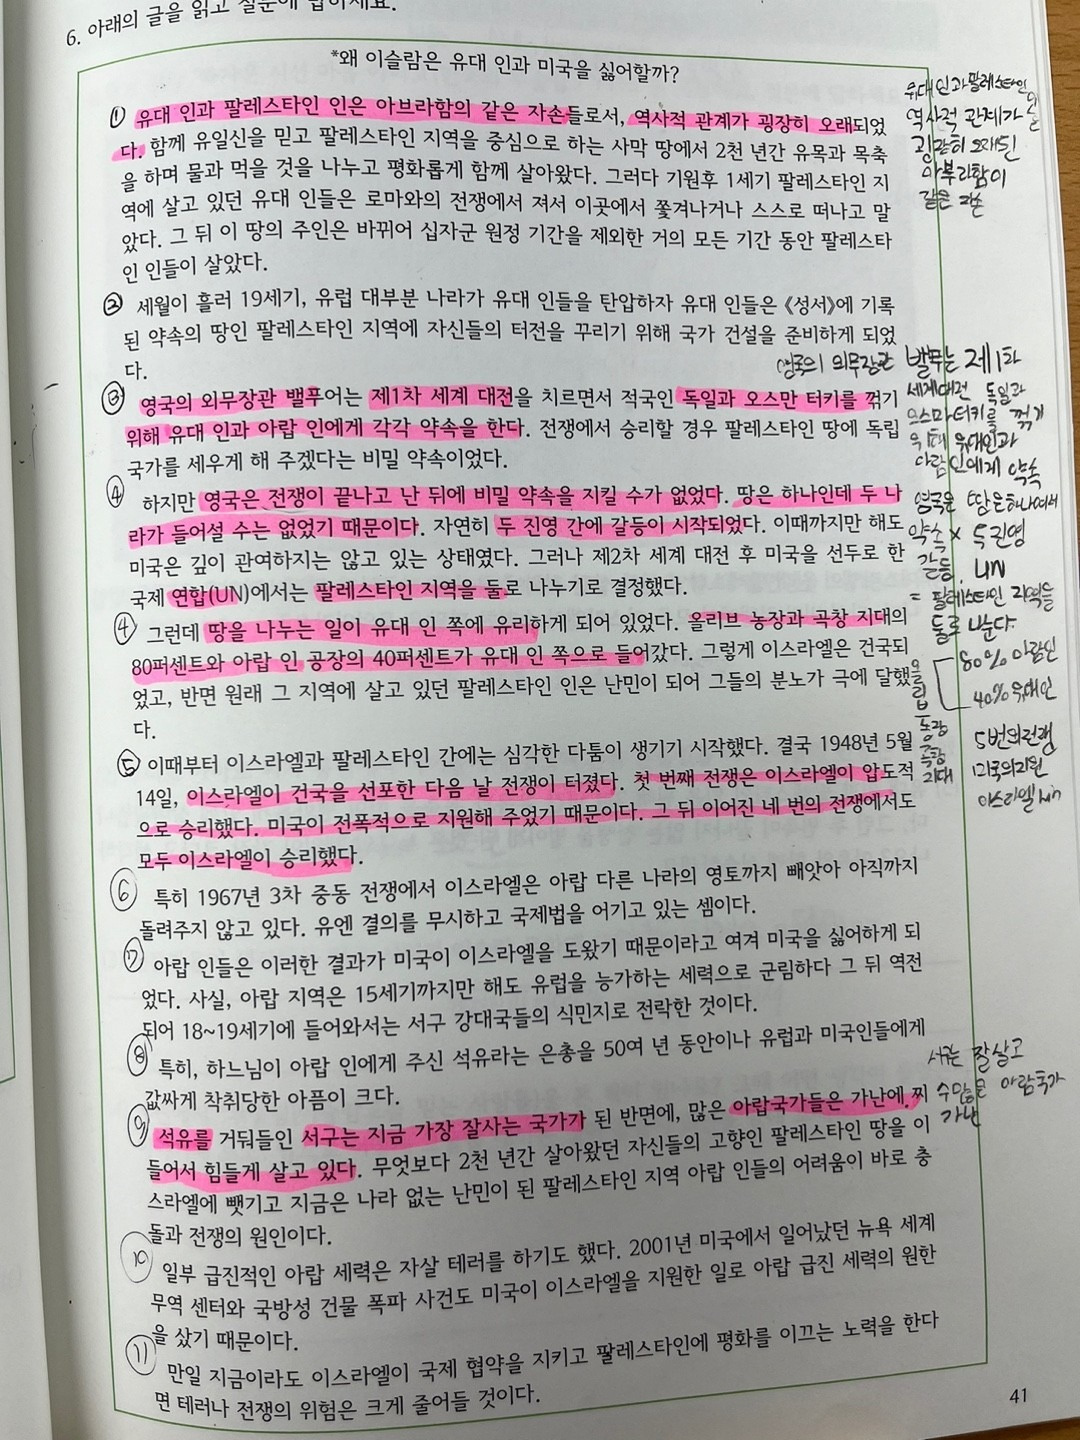 6. 아래의 글을 읽고 질문에 답하세요.
*왜 이슬람은 유대 인과 미국을 싫어할까?
① 유대 인과 팔레스타인 인은 아브라함의 같은 자손들로서, 역사적 관계가 굉장히 오래되었
다. 함께 유일신을 믿고 팔레스타인 지역을 중심으로 하는 사막 땅에서 2천 년간 유목과 목축
을 하며 물과 먹을 것을 나누고 평화롭게 함께 살아왔다. 그러다 기원후 1세기 팔레스타인 지
역에 살고 있던 유대 인들은 로마와의 전쟁에서 져서 이곳에서 쫓겨나거나 스스로 떠나고 말
았다. 그 뒤 이 땅의 주인은 바뀌어 십자군 원정 기간을 제외한 거의 모든 기간 동안 팔레스타
인 인들이 살았다.
② 세월이 흘러 19세기, 유럽 대부분 나라가 유대 인들을 탄압하자 유대 인들은 《성서》에 기록
된 약속의 땅인 팔레스타인 지역에 자신들의 터전을 꾸리기 위해 국가 건설을 준비하게 되었
다.
③ 영국의 외무장관 밸푸어는 제1차 세계 대전을 치르면서 적국인 독일과 오스만 터키를 꺾기
위해 유대 인과 아랍 인에게 각각 약속을 한다. 전쟁에서 승리할 경우 팔레스타인 땅에 독립
국가를 세우게 해 주겠다는 비밀 약속이었다.
④ 하지만 영국은 전쟁이 끝나고 난 뒤에 비밀 약속을 지킬 수가 없었다. 땅은 하나인데 두 나
라가 들어설 수는 없었기 때문이다. 자연히 두 진영 간에 갈등이 시작되었다. 이때까지만 해도
미국은 깊이 관여하지는 않고 있는 상태였다. 그러나 제2차 세계 대전 후 미국을 선두로 한
국제 연합(UN)에서는 팔레스타인 지역을 둘로 나누기로 결정했다.
④ 그런데 땅을 나누는 일이 유대 인 쪽에 유리하게 되어 있었다. 올리브 농장과 곡창 지대의
80퍼센트와 아랍 인 공장의 40퍼센트가 유대 인 쪽으로 들어갔다. 그렇게 이스라엘은 건국되
었고, 반면 원래 그 지역에 살고 있던 팔레스타인 인은 난민이 되어 그들의 분노가 극에 달했
다.
⑤ 이때부터 이스라엘과 팔레스타인 간에는 심각한 다툼이 생기기 시작했다. 결국 1948년 5월
14일, 이스라엘이 건국을 선포한 다음 날 전쟁이 터졌다. 첫 번째 전쟁은 이스라엘이 압도적
으로 승리했다. 미국이 전폭적으로 지원해 주었기 때문이다. 그 뒤 이어진 네 번의 전쟁에서도
모두 이스라엘이 승리했다.
⑥ 특히 1967년 3차 중동 전쟁에서 이스라엘은 아랍 다른 나라의 영토까지 빼앗아 아직까지
돌려주지 않고 있다. 유엔 결의를 무시하고 국제법을 어기고 있는 셈이다.
⑦ 아랍 인들은 이러한 결과가 미국이 이스라엘을 도왔기 때문이라고 여겨 미국을 싫어하게 되
었다. 사실, 아랍 지역은 15세기까지만 해도 유럽을 능가하는 세력으로 군림하다 그 뒤 역전
되어 18~19세기에 들어와서는 서구 강대국들의 식민지로 전락한 것이다.
⑧ 특히, 하느님이 아랍 인에게 주신 석유라는 은총을 50여 년 동안이나 유럽과 미국인들에게
값싸게 착취당한 아픔이 크다.
⑨ 석유를 거둬들인 서구는 지금 가장 잘사는 국가가 된 반면에, 많은 아랍국가들은 가난에 찌
들어서 힘들게 살고 있다. 무엇보다 2천 년간 살아왔던 자신들의 고향인 팔레스타인 땅을 이
스라엘에 뺏기고 지금은 나라 없는 난민이 된 팔레스타인 지역 아랍 인들의 어려움이 바로 충
돌과 전쟁의 원인이다.
⑩ 일부 급진적인 아랍 세력은 자살 테러를 하기도 했다. 2001년 미국에서 일어났던 뉴욕 세계
무역 센터와 국방성 건물 폭파 사건도 미국이 이스라엘을 지원한 일로 아랍 급진 세력의 원한
을 샀기 때문이다.
⑪ 만일 지금이라도 이스라엘이 국제 협약을 지키고 팔레스타인에 평화를 이끄는 노력을 한다
면 테러나 전쟁의 위험은 크게 줄어들 것이다.
유대인과 팔레스타인
역사적 관계가
굉장히 오래된
아브라함이
같은 자손
영국의 의무장관 밸푸는 제1차
세계대전 독일과
오스마터키를 꺾기
위해 유대인과
아랍인에게 약속
영국은 땅은하나여서
약속 x 두진영
갈등, UN
= 팔레스타인 지역을
둘로 나눈다.
80% 아랍인
40% 유대인
농장
곡창
지대
5번의전쟁
미국의지원
이스라엘 win
서구는 잘살고
수많은 아랍국가
가난
41